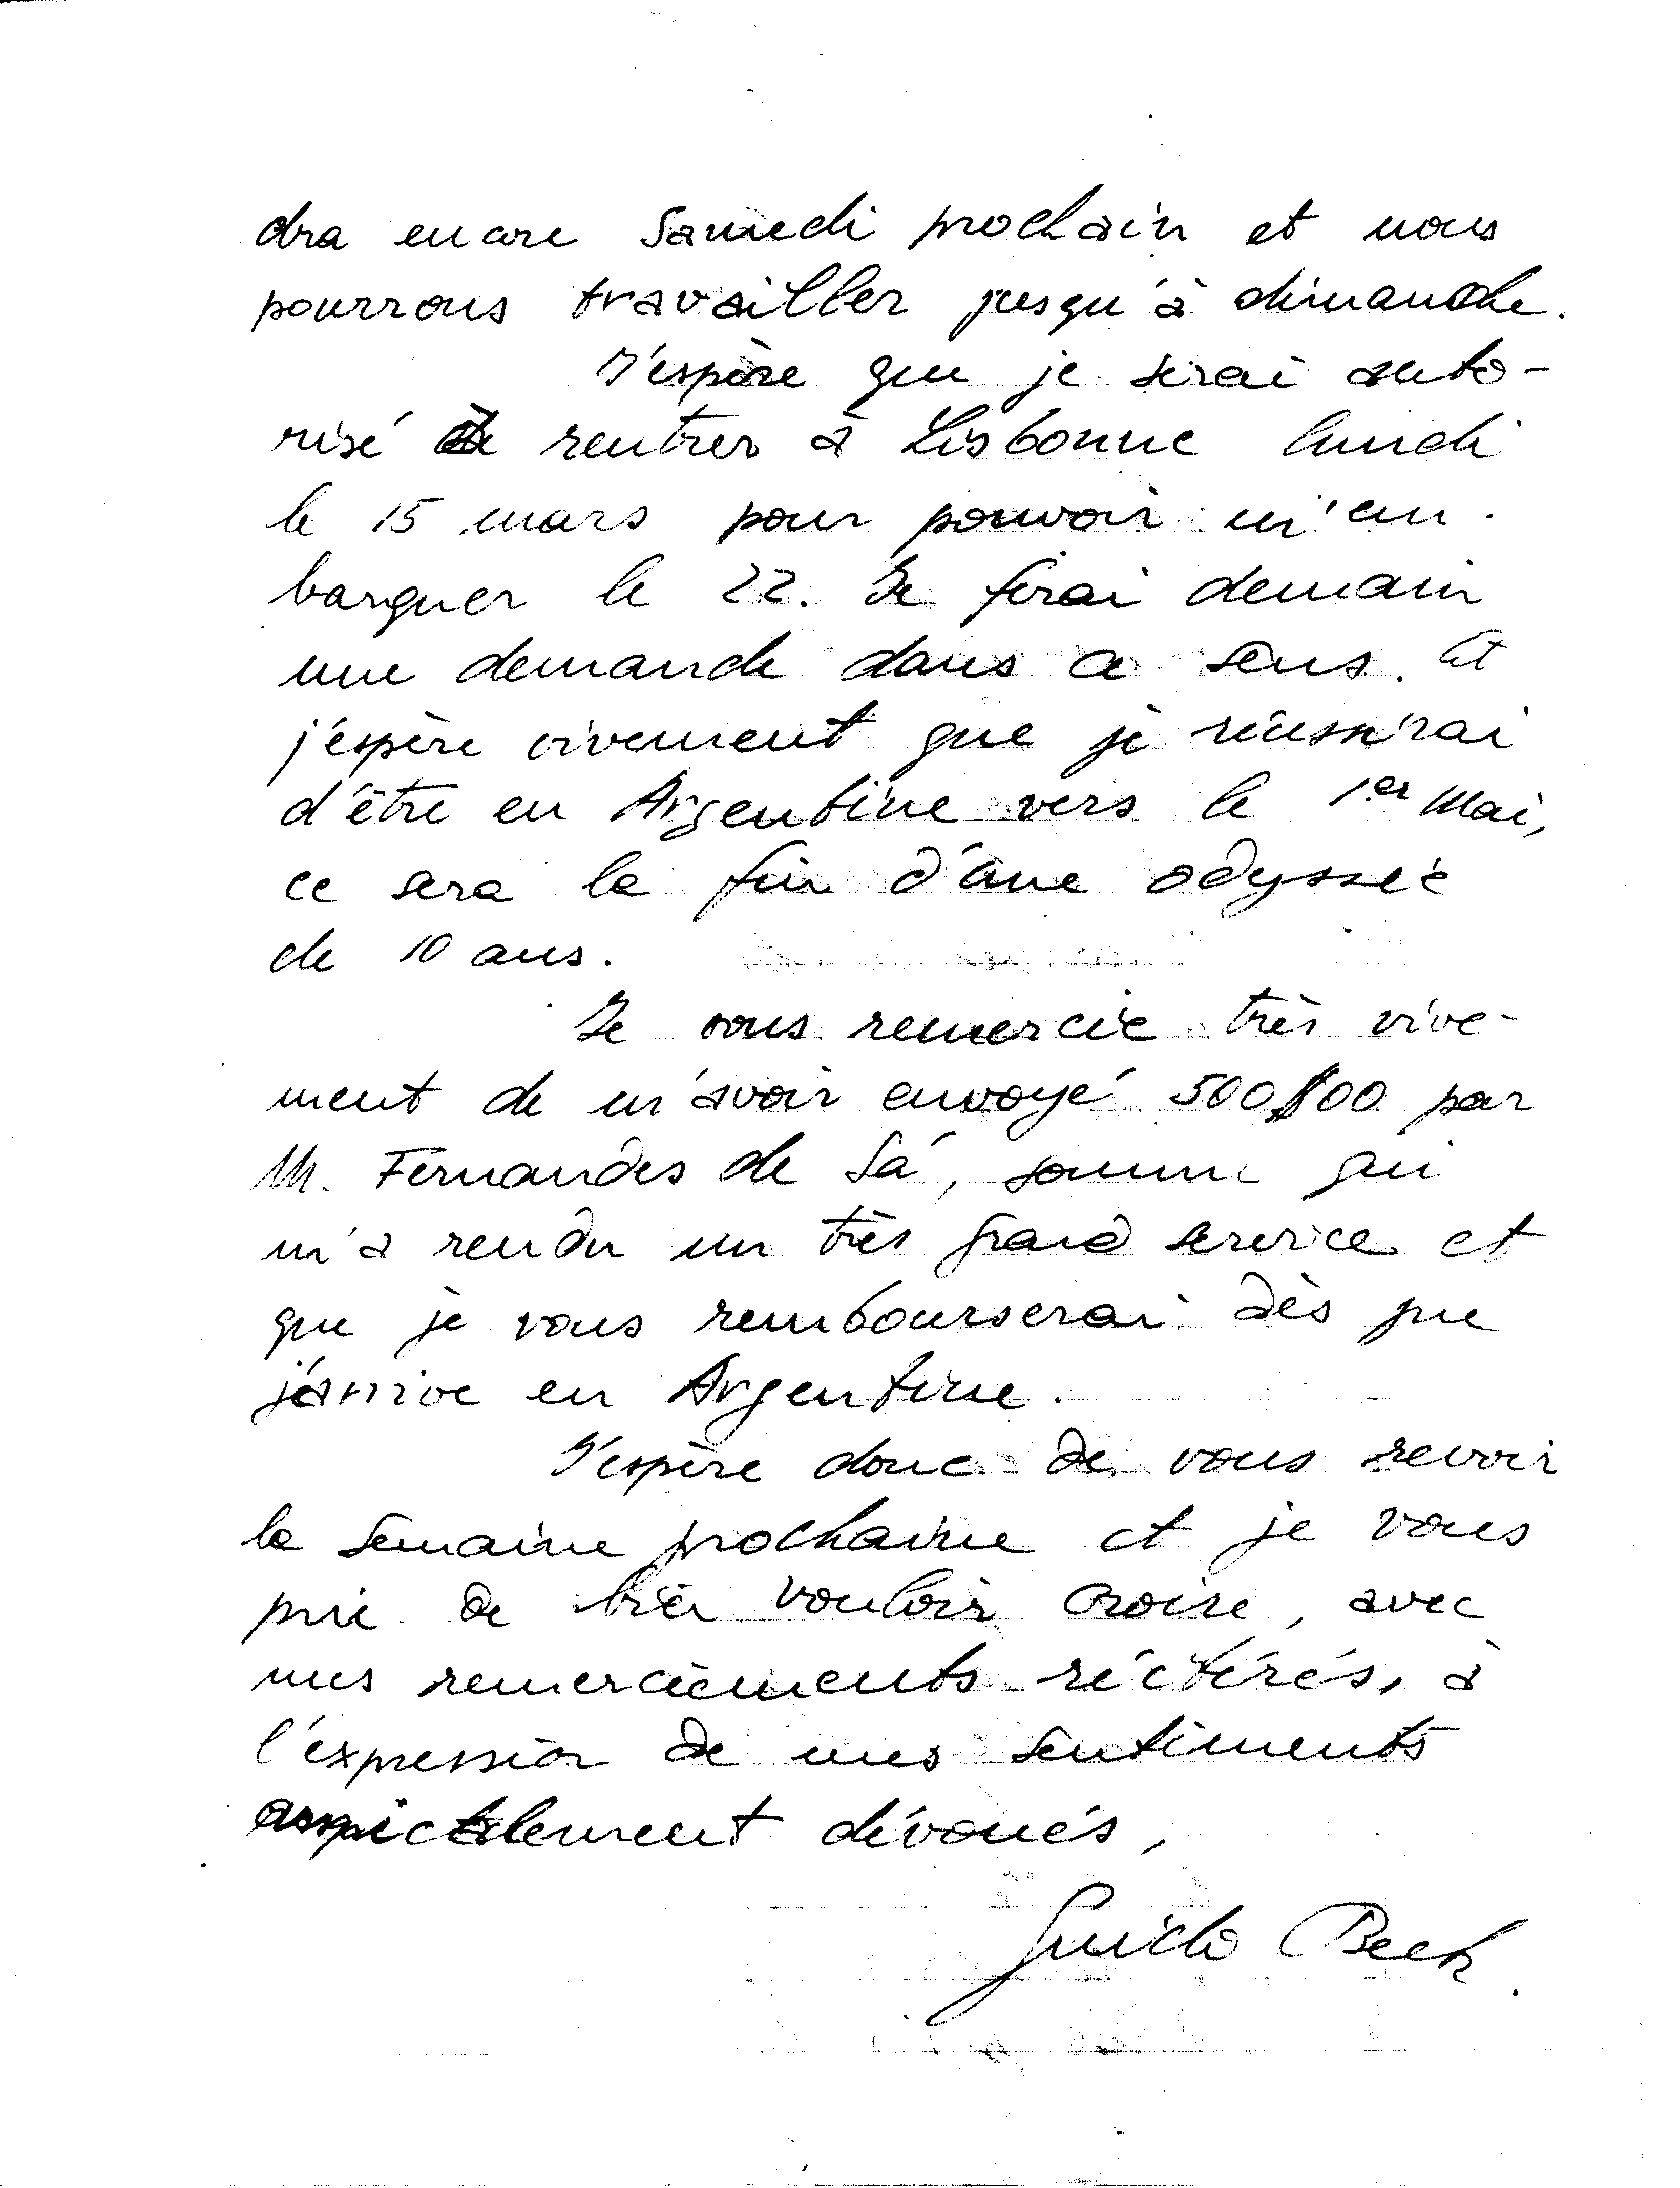 dra encore Samedi prochain et nous
pourrons travailler jusqu'à dimanche.
J'espère que je serai auto-
risé de rentrer à Lisbonne lundi
le 15 mars pour pouvoir m'em-
barquer le 22. Je ferai demain
une demande dans ce sens. Et
j'espère vivement que je réussirai
d'être en Argentine vers le 1er Mai,
ce sera la fin d'une odyssée
de 10 ans.
Je vous remercie très vive-
ment de m'avoir envoyé 500$00 par
M. Fernandes de Sá, somme qui
m'a rendu un très grand service et
que je vous rembourserai dès que
j'arrive en Argentine.
J'espère donc de vous revoir
la semaine prochaine et je vous
prie de bien vouloir croire, avec
mes remerciements réitérés, à
l'expression de mes sentiments
dévoués,
Guido Beck.